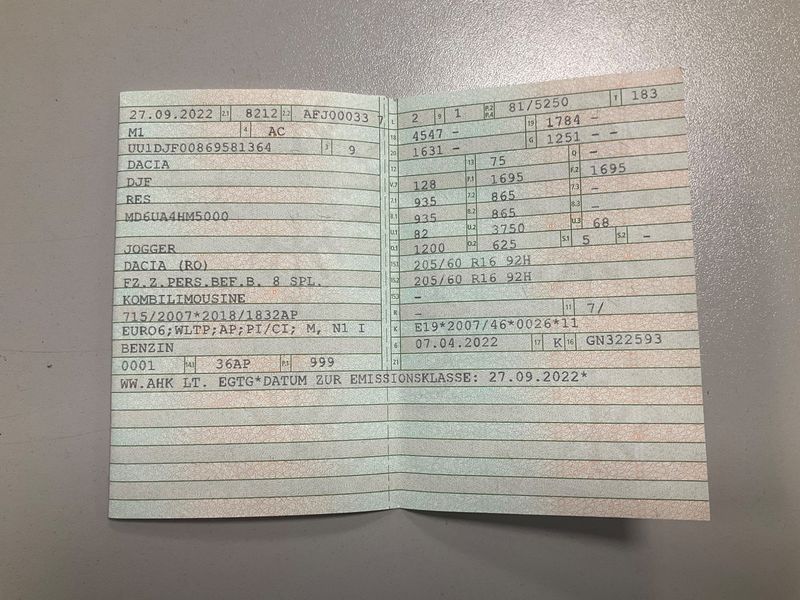 27.09.2022 2.1 8212 2.2 AFJ00033 7
M1 4 AC
UU1DJF00869581364 3 9
DACIA
DJF
RES
MD6UA4HM5000
JOGGER
DACIA (RO)
FZ.Z.PERS.BEF.B. 8 SPL.
KOMBILIMOUSINE
715/2007*2018/1832AP
EURO6;WLTP;AP;PI/CI; M, N1 I
BENZIN
0001 14.1 36AP P.1 999
WW.AHK LT. EGTG*DATUM ZUR EMISSIONSKLASSE: 27.09.2022*
L 2 9 1 P.2 P.4 81/5250 T 183
18 4547 – 19 1784 –
20 1631 – G 1251 – –
12 13 75 Q –
V.7 128 F.1 1695 F.2 1695
7.1 935 7.2 865 7.3 –
8.1 935 8.2 865 8.3 –
U.1 82 U.2 3750 U.3 68
O.1 1200 O.2 625 S.1 5 S.2 –
15.1 205/60 R16 92H
15.2 205/60 R16 92H
15.3 –
R – 11 7/
K E19*2007/46*0026*11
6 07.04.2022 17 K 16 GN322593
21